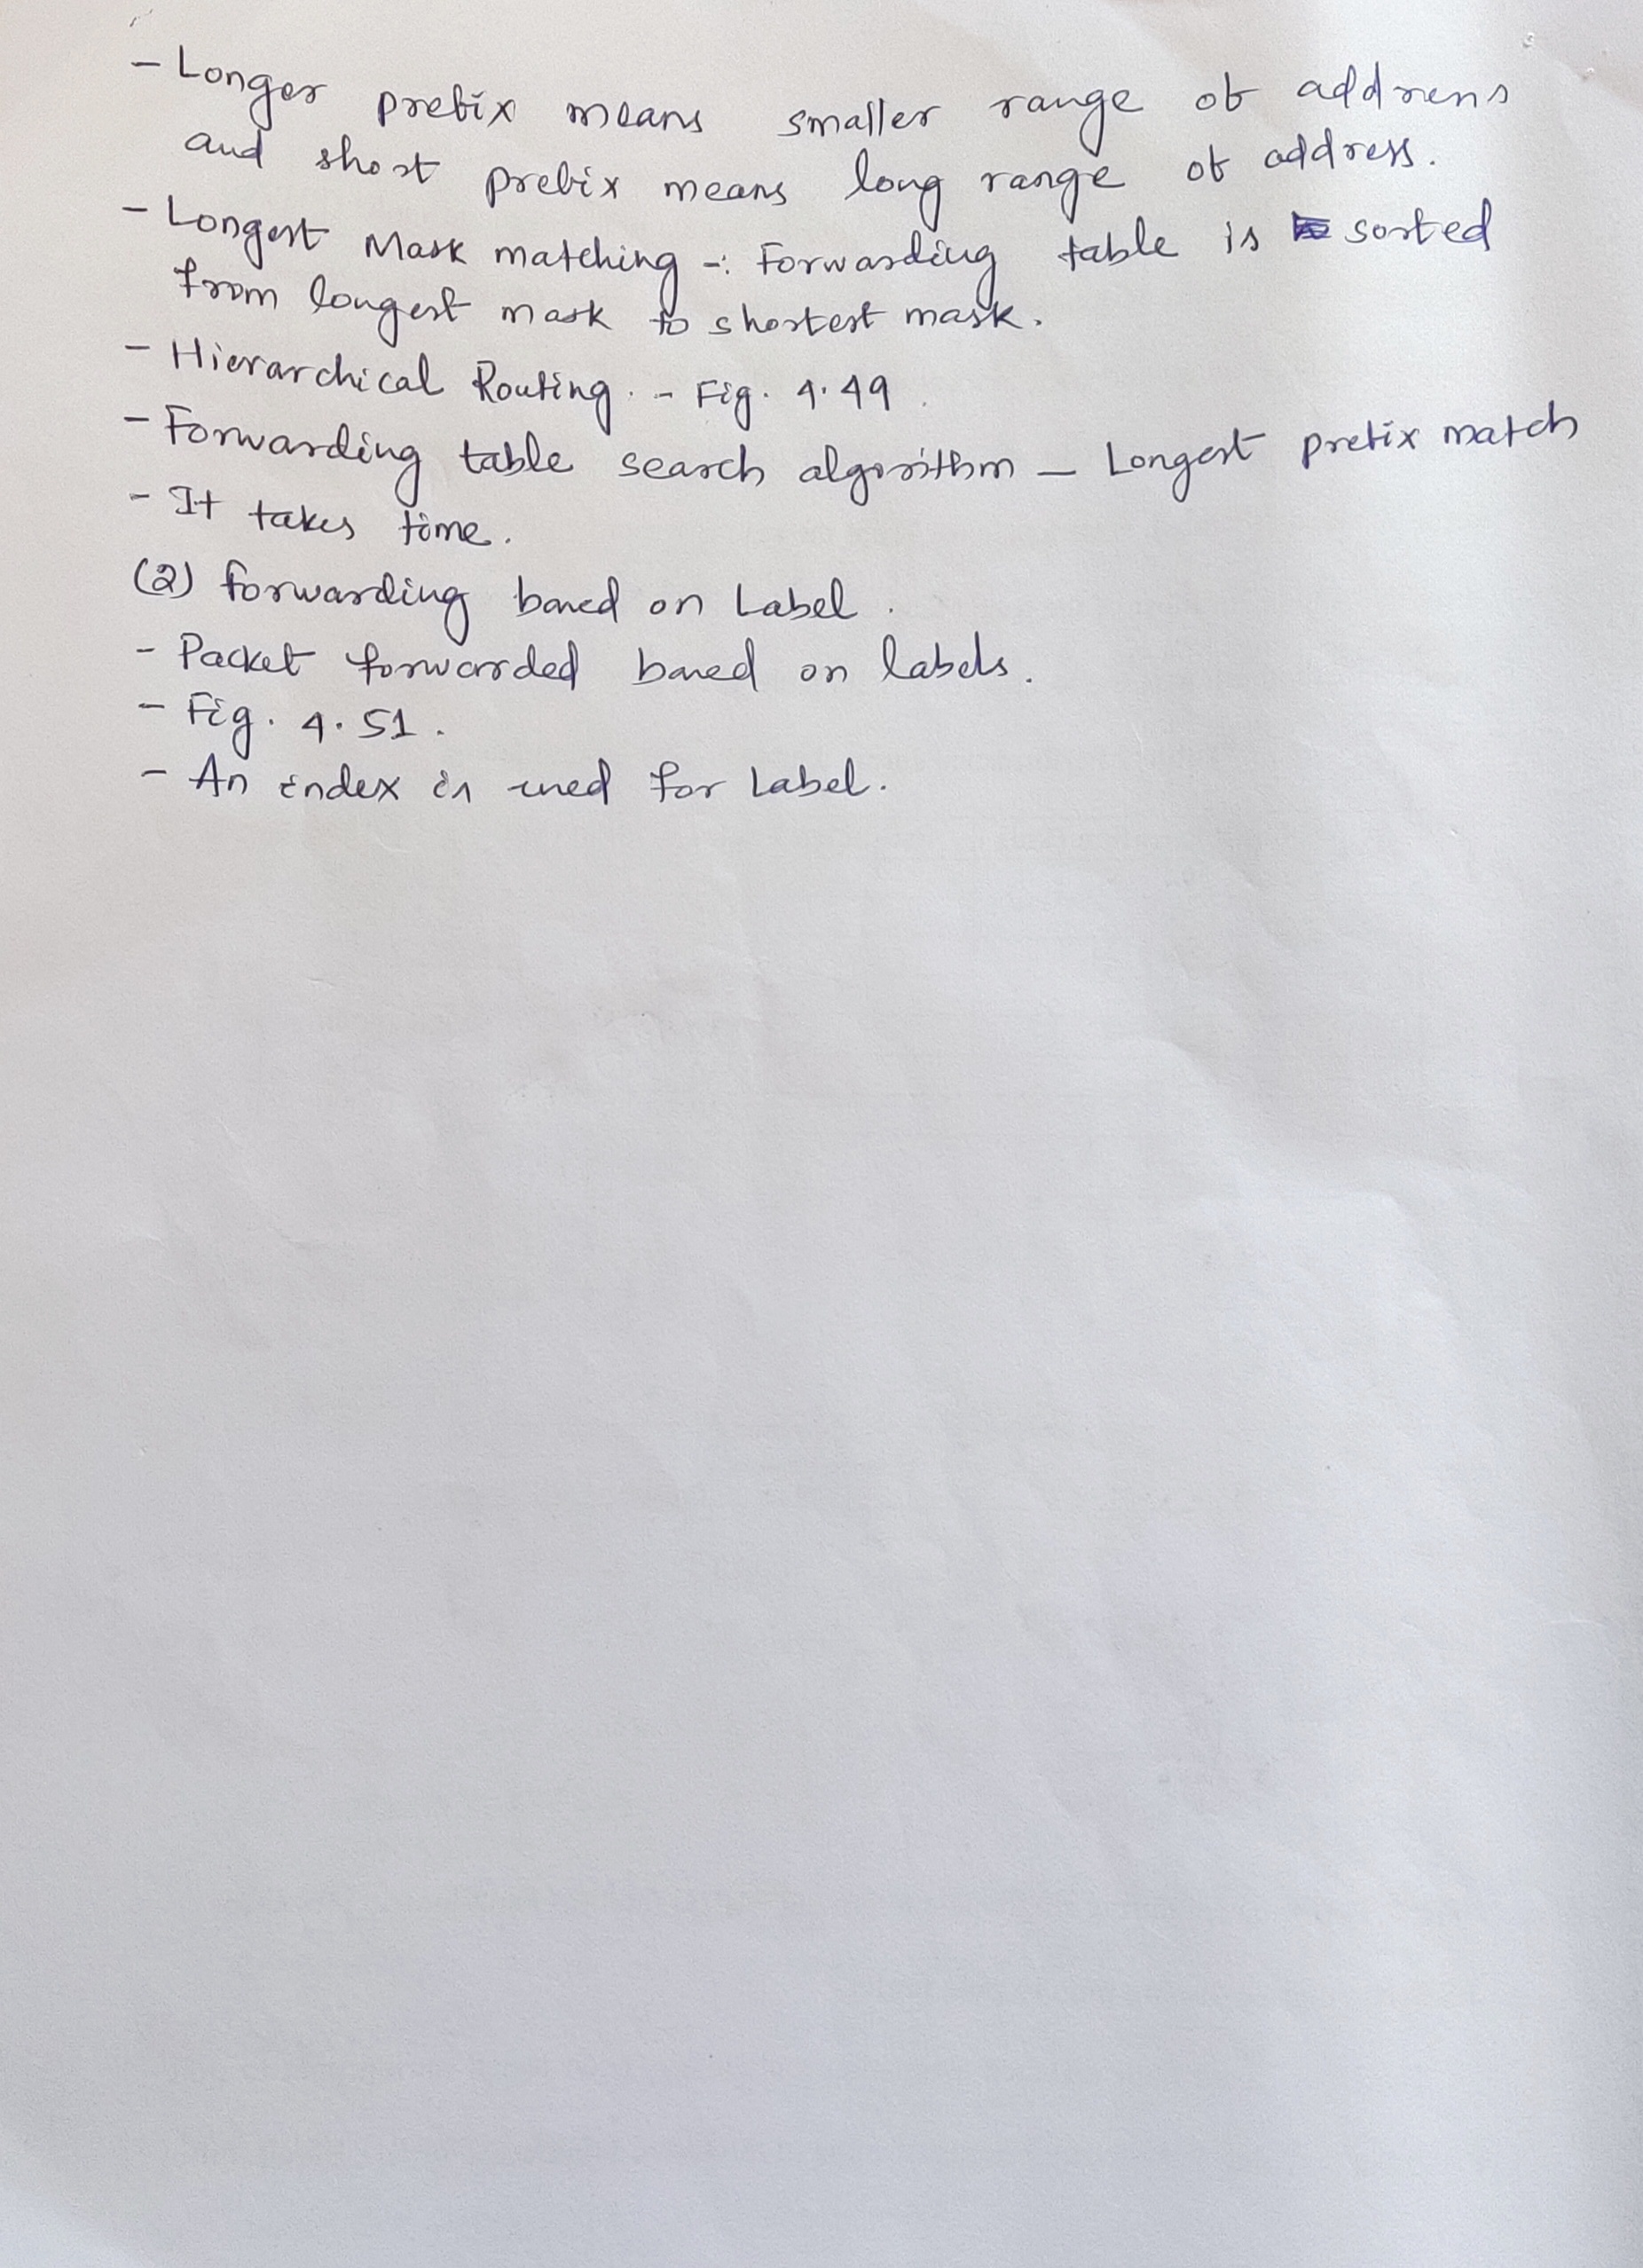 - Longer prefix means smaller range of address
and short prefix means long range of address.
- Longest Mask matching -: Forwarding table is sorted
from longest mask to shortest mask.
- Hierarchical Routing. - Fig. 4.49.
- Forwarding table search algorithm - Longest prefix match
- It takes time.
(2) forwarding based on Label.
- Packet forwarded based on labels.
- Fig. 4.51.
- An index is used for Label.